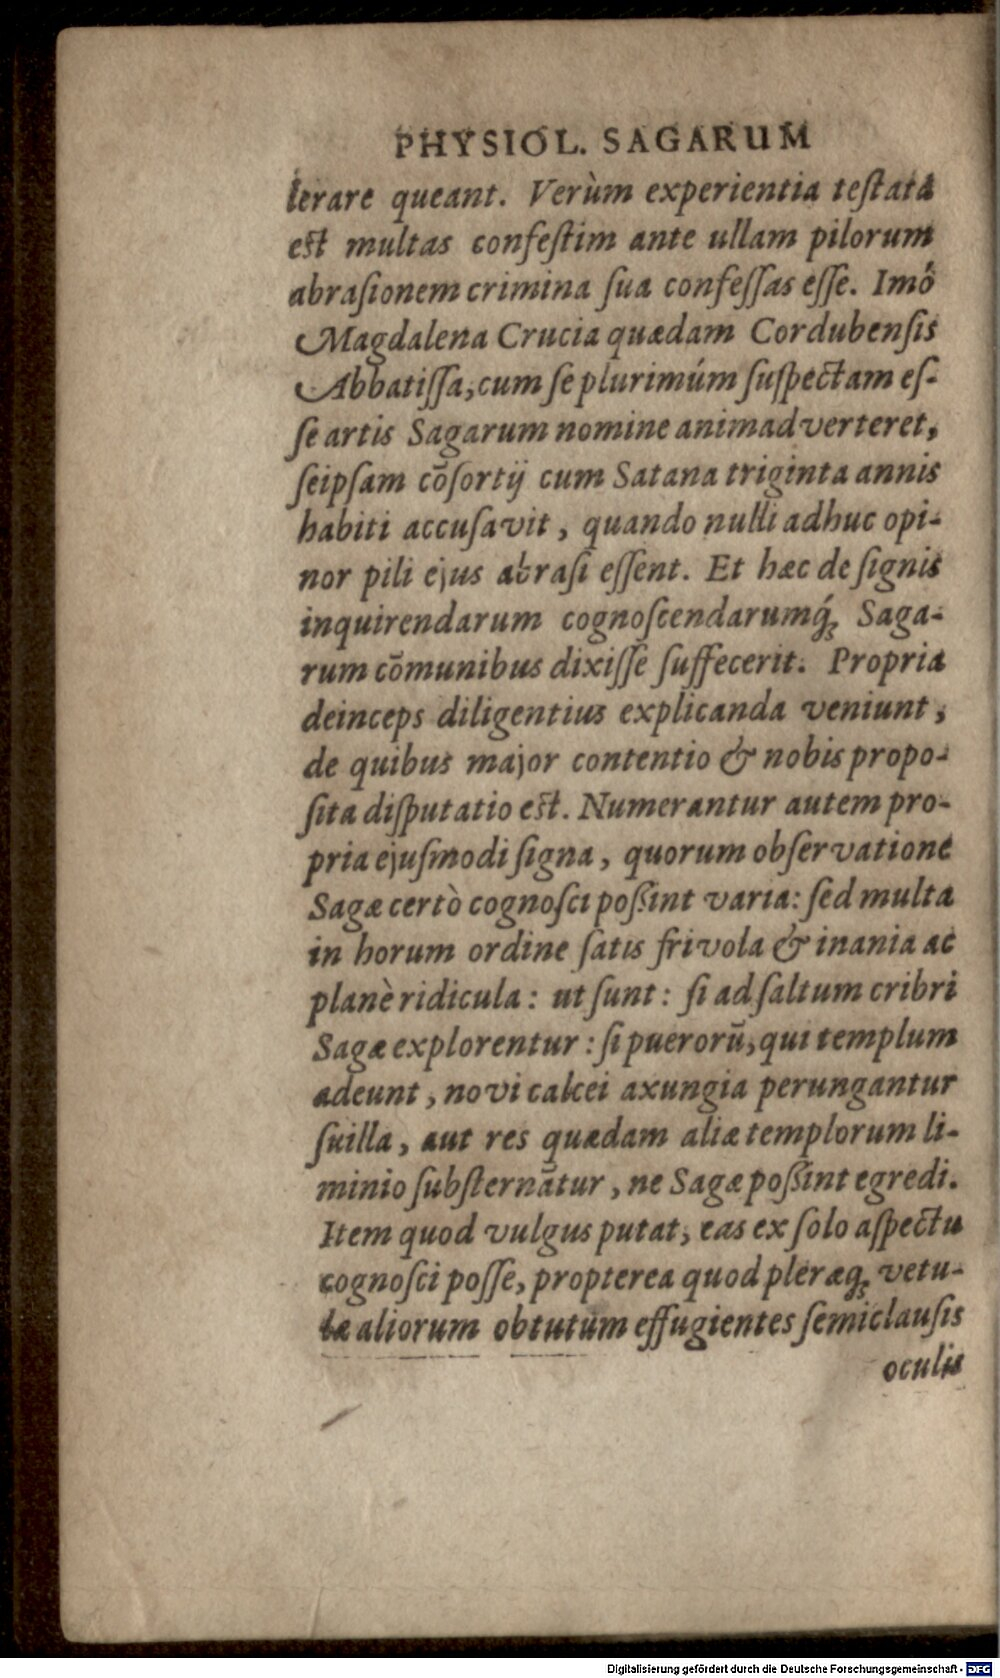 PHYSIOL. SAGARUM
lerare queant. Verùm experientia teſtata
eſt multas confeſtim ante ullam pilorum
abraſionem crimina ſua confeſſas eſſe. Imó
Magdalena Crucia quædam Cordubenſis
Abbatiſſa, cum ſe plurimúm ſuſpectam eſ-
ſe artis Sagarum nomine animadverteret,
ſeipſam cōſortij cum Satana triginta annis
habiti accuſavit, quando nulli adhuc opi-
nor pili ejus abraſi eſſent. Et hæc de ſignis
inquirendarum cognoſcendarumq́; Saga-
rum cōmunibus dixiſſe ſuffecerit. Propria
deinceps diligentius explicanda veniunt,
de quibus major contentio & nobis propo-
ſita diſputatio eſt. Numerantur autem pro-
pria ejuſmodi ſigna, quorum obſervatione
Sagæ certò cognoſci poßint varia: ſed multa
in horum ordine ſatis frivola & inania ac
planè ridicula: ut ſunt: ſi ad ſaltum cribri
Sagæ explorentur: ſi puerorū, qui templum
adeunt, novi calcei axungia perungantur
ſuilla, aut res quædam aliæ templorum li-
minio ſubſternātur, ne Sagæ poßint egredi.
Item quod vulgus putat, eas ex ſolo aſpectu
cognoſci poſſe, propterea quod pleræq; vetu-
læ aliorum obtutum effugientes ſemiclauſis
oculis
Digitalisierung gefördert durch die Deutsche Forschungsgemeinschaft - DFG